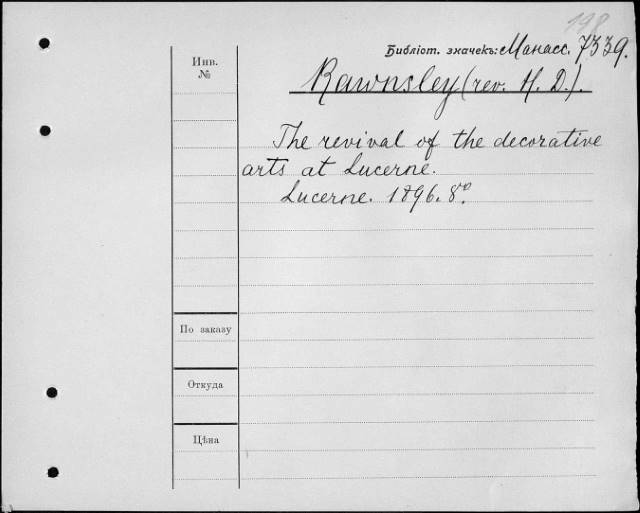 198
Библіот. значекъ: Манасс. 7339.
Инв.
№
Rawnsley (rev. H. D.).
The revival of the decorative
arts at Lucerne.
Lucerne. 1896. 8º.
По заказу
Откуда
Цѣна